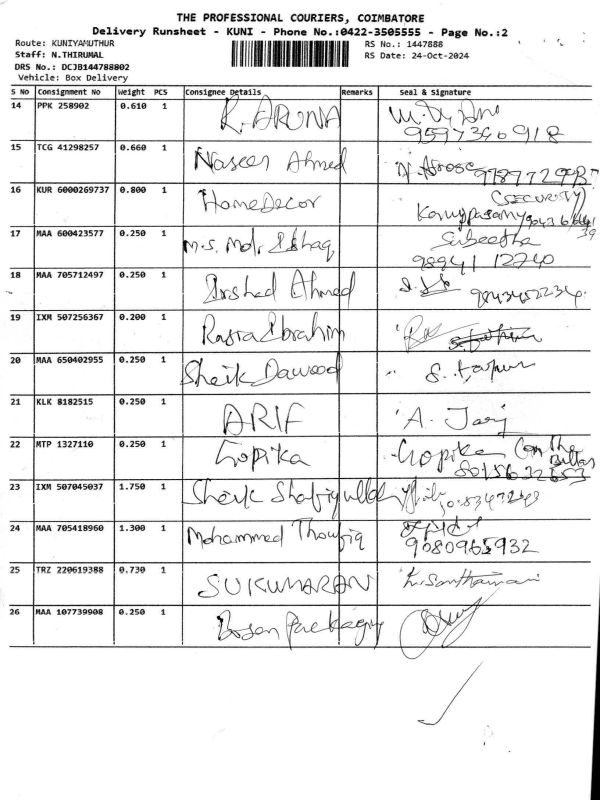 THE PROFESSIONAL COURIERS, COIMBATORE
Delivery Runsheet - KUNI - Phone No.:0422-3505555 - Page No.:2
Route: KUNIYAMUTHUR RS No.: 1447888
Staff: N.THIRUMAL RS Date: 24-Oct-2024
DRS No.: DCJB144788802
Vehicle: Box Delivery
S No Consignment No Weight PCS Consignee Details Remarks Seal & Signature
14 PPK 258902 0.610 1 R. ARUNA
15 TCG 41298257 0.660 1 Naseer Ahmed
16 KUR 6000269737 0.800 1 HomeDecor (SECURITY)
17 MAA 600423577 0.250 1 M.S. Md. Ishaq Subeetha
98941 12740
18 MAA 705712497 0.250 1 Arshad Ahmed
19 IXM 507256367 0.200 1 Rasra Ibrahim
20 MAA 650402955 0.250 1 Sheik Dawood
21 KLK 8182515 0.250 1 ARIF A.
22 MTP 1327110 0.250 1 Gopika Gopika
8015632653
23 IXM 507045037 1.750 1 Sheik Shafiyullah
24 MAA 705418960 1.300 1 Mohammed Thoufiq
9080965932
25 TRZ 220619388 0.730 1 SUKUMARAN
26 MAA 107739908 0.250 1